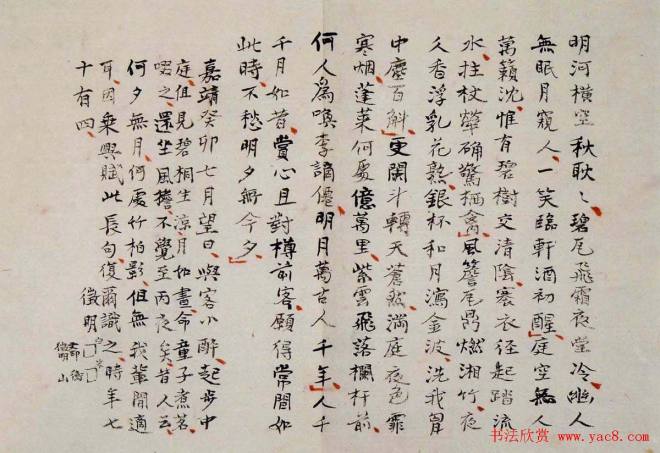 明河橫空秋耿〻碧瓦飛霜夜堂冷幽人
無眠月窺人一笑臨軒酒初醒庭空無人
萬籟沈惟有碧樹交清陰褰衣徑起踏流
水拄杖犖确驚栖禽風簷瓦鼎燃湘竹夜
久香浮乳花熟銀杯和月瀉金波洗我胷
中塵百斛更闌斗轉天蒼然滿庭夜色霏
寒烟蓬萊何處億萬里紫雲飛落欄杆前
何人爲喚李謫僊明月萬古人千年人千
千月如昔賞心且對樽前客願得常閒如
此時不愁明夕無今夕
嘉靖癸卯七月望日與客小醉起步中
庭但見碧桐生涼月如晝命童子煮茗
啜之還坐風簷不覺至丙夜矣昔人云
何夕無月何處竹柏影但無我輩閒適
耳因乘興賦此長句復爾識之時年七
十有四
徵明
徵明
衡山
书法欣赏 www.yac8.com